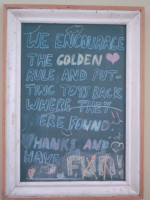 WE ENCOURAGE
THE GOLDEN
RULE AND PUT-
TING TOYS BACK
WHERE THEY
WERE FOUND.
THANKS AND
HAVE FUN!